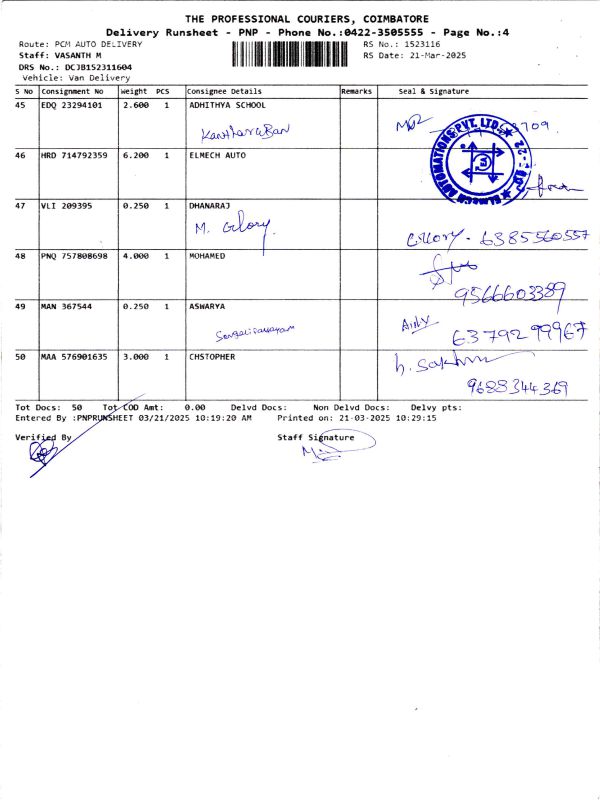 THE PROFESSIONAL COURIERS, COIMBATORE
Delivery Runsheet - PNP - Phone No.:0422-3505555 - Page No.:4
Route: PCM AUTO DELIVERY RS No.: 1523116
Staff: VASANTH M RS Date: 21-Mar-2025
DRS No.: DCJB152311604
Vehicle: Van Delivery
S No Consignment No Weight PCS Consignee Details Remarks Seal & Signature
45 EDQ 23294101 2.600 1 ADHITHYA SCHOOL
46 HRD 714792359 6.200 1 ELMECH AUTO
ELMECH AUTOMATIONS PVT. LTD.
47 VLI 209395 0.250 1 DHANARAJ
M. Glory
Glory. 6385560557
48 PNQ 757808698 4.000 1 MOHAMED
9566603389
49 MAN 367544 0.250 1 ASWARYA
6379299967
50 MAA 576901635 3.000 1 CHSTOPHER
9688344369
Tot Docs: 50 Tot COD Amt: 0.00 Delvd Docs: Non Delvd Docs: Delvy pts:
Entered By :PNPRUNSHEET 03/21/2025 10:19:20 AM Printed on: 21-03-2025 10:29:15
Verified By Staff Signature